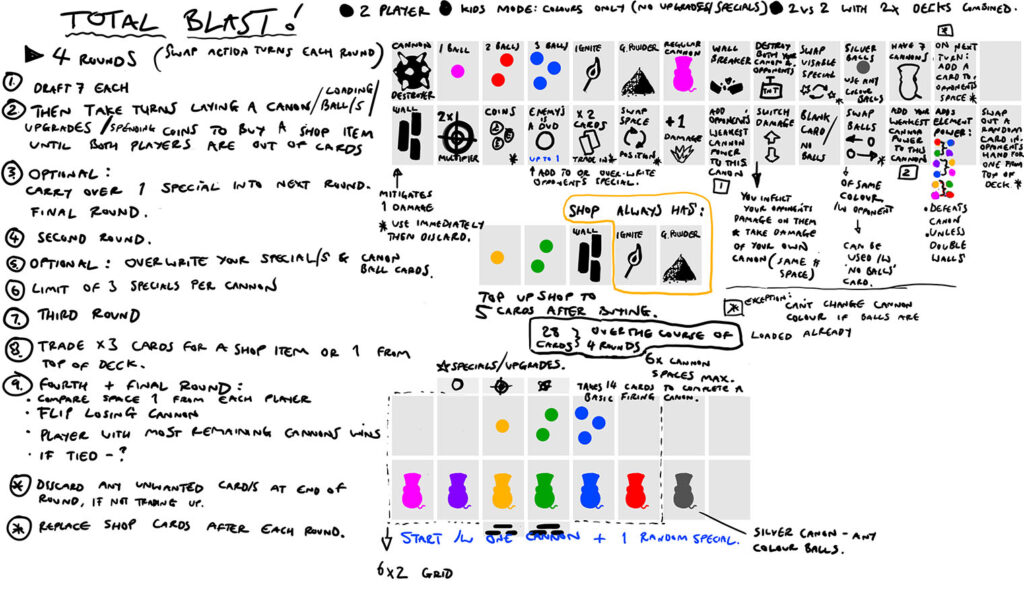 TOTAL BLAST!
2 PLAYER
KIDS MODE: COLOURS ONLY (NO UPGRADES/SPECIALS)
2 VS 2 WITH 2X DECKS COMBINED.
4 ROUNDS (SWAP ACTION TURNS EACH ROUND)
1 DRAFT 7 EACH
2 THEN TAKE TURNS LAYING A CANON/LOADING BALL/S/
UPGRADES/SPENDING COINS TO BUY A SHOP ITEM
UNTIL BOTH PLAYERS ARE OUT OF CARDS
3 OPTIONAL:
CARRY OVER 1 SPECIAL INTO NEXT ROUND.
FINAL ROUND.
4 SECOND ROUND.
5 OPTIONAL: OVERWRITE YOUR SPECIAL/S & CANON
BALL CARDS.
6 LIMIT OF 3 SPECIALS PER CANNON
7. THIRD ROUND
8 TRADE X3 CARDS FOR A SHOP ITEM OR 1 FROM
TOP OF DECK.
9. FOURTH + FINAL ROUND:
• COMPARE SPACE 1 FROM EACH PLAYER
• FLIP LOSING CANNON
• PLAYER WITH MOST REMAINING CANNONS WINS
• IF TIED - ?
* DISCARD ANY UNWANTED CARD/S AT END OF
ROUND, IF NOT TRADING UP.
* REPLACE SHOP CARDS AFTER EACH ROUND.
CANNON
DESTROYER
1 BALL
2 BALLS
3 BALLS
IGNITE
G. POWDER
REGULAR
CANNON
WALL
BREAKER
DESTROY
BOTH YOUR
CANON &
OPPONENTS
TNT
SWAP
VISABLE
SPECIAL
*
SILVER
BALLS
USE ANY
COLOUR
BALLS
HAVE 7
CANNONS
*
ON NEXT
TURN:
ADD A
CARD TO
OPONENTS
SPACE *
WALL
2X1
MULTIPLIER
COINS
*
ENEMY'S
A DUD
UP TO 1
X 2
CARDS
TRADE IN *
SWAP
SPACE
POSITION *
+1
DAMAGE
ADD
OPPONENTS
WEAKEST
CANNON
POWER
TO THIS
CANON
1
SWITCH
DAMAGE
BLANK
CARD/
NO
BALLS
SWAP
BALLS
*
ADD YOUR
WEAKEST
CANNON
POWER
TO THIS
CANNON
2
ADDS
ELEMENT
POWER:
SWAP
OUT A
RANDOM
CARD IN
OPPONENTS
HAND FOR
ONE FROM
TOP OF
DECK *
MITIGATES
1 DAMAGE
* USE IMMEDIATELY
THEN DISCARD.
ADD TO OR OVER-WRITE
OPONENT'S SPECIAL.
YOU INFLICT
YOUR OPPONENTS
DAMAGE ON THEM
* TAKE DAMAGE
OF YOUR OWN
CANON (SAME #
SPACE)
OF SAME
COLOUR
/W OPPONENT
CAN BE
USED /W
'NO BALLS'
CARD.
• DEFEATS
CANON
• UNLESS
DOUBLE
WALLS
SHOP ALWAYS HAS:
WALL
IGNITE
G. POWDER
TOP UP SHOP TO
5 CARDS AFTER BUYING.
* EXCEPTION:
CAN'T CHANGE CANNON
COLOUR IF BALLS ARE
LOADED ALREADY
28 CARDS } OVER THE COURSE OF
4 ROUNDS
6X CANNON
SPACES MAX.
☆ SPECIALS/UPGRADES.
TAKES 14 CARDS TO COMPLETE A
BASIC FIRING CANON.
SILVER CANON - ANY
COLOUR BALLS.
START /W ONE CANNON + 1 RANDOM SPECIAL.
6X2 GRID